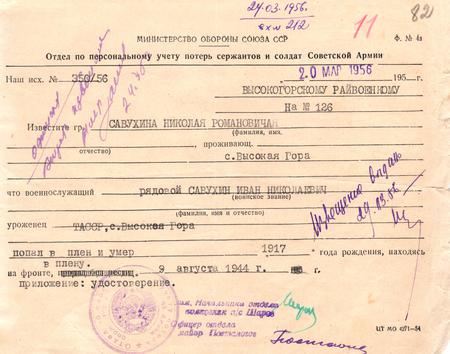 24.03.1956.
вх № 212
11
82
МИНИСТЕРСТВО ОБОРОНЫ СОЮЗА ССР
Ф. № 4а
Отдел по персональному учету потерь сержантов и солдат Советской Армии
Наш исх. № 350/56
20 МАР 1956
195 г.
ВЫСОКОГОРСКОМУ РАЙВОЕНКОМУ
На № 126
Известите гр. САВУХИНА НИКОЛАЯ РОМАНОВИЧАЯ
(фамилия, имя,
отчество)
проживающ.
с.Высокая Гора
что военнослужащий рядовой САВУХИН ИВАН НИКОЛАЕВИЧ
(воинское звание)
(фамилия, имя и отчество)
уроженец ТАССР,с.Высокая Гора
попал в плен и умер 1917 года рождения, находясь
в плену.
на фронте, 9 августа 1944 г.
Приложение: удостоверение.
Зам. Начальника отдела
полковник а/с Шаров
Офицер отдела
майор
ЦТ МО